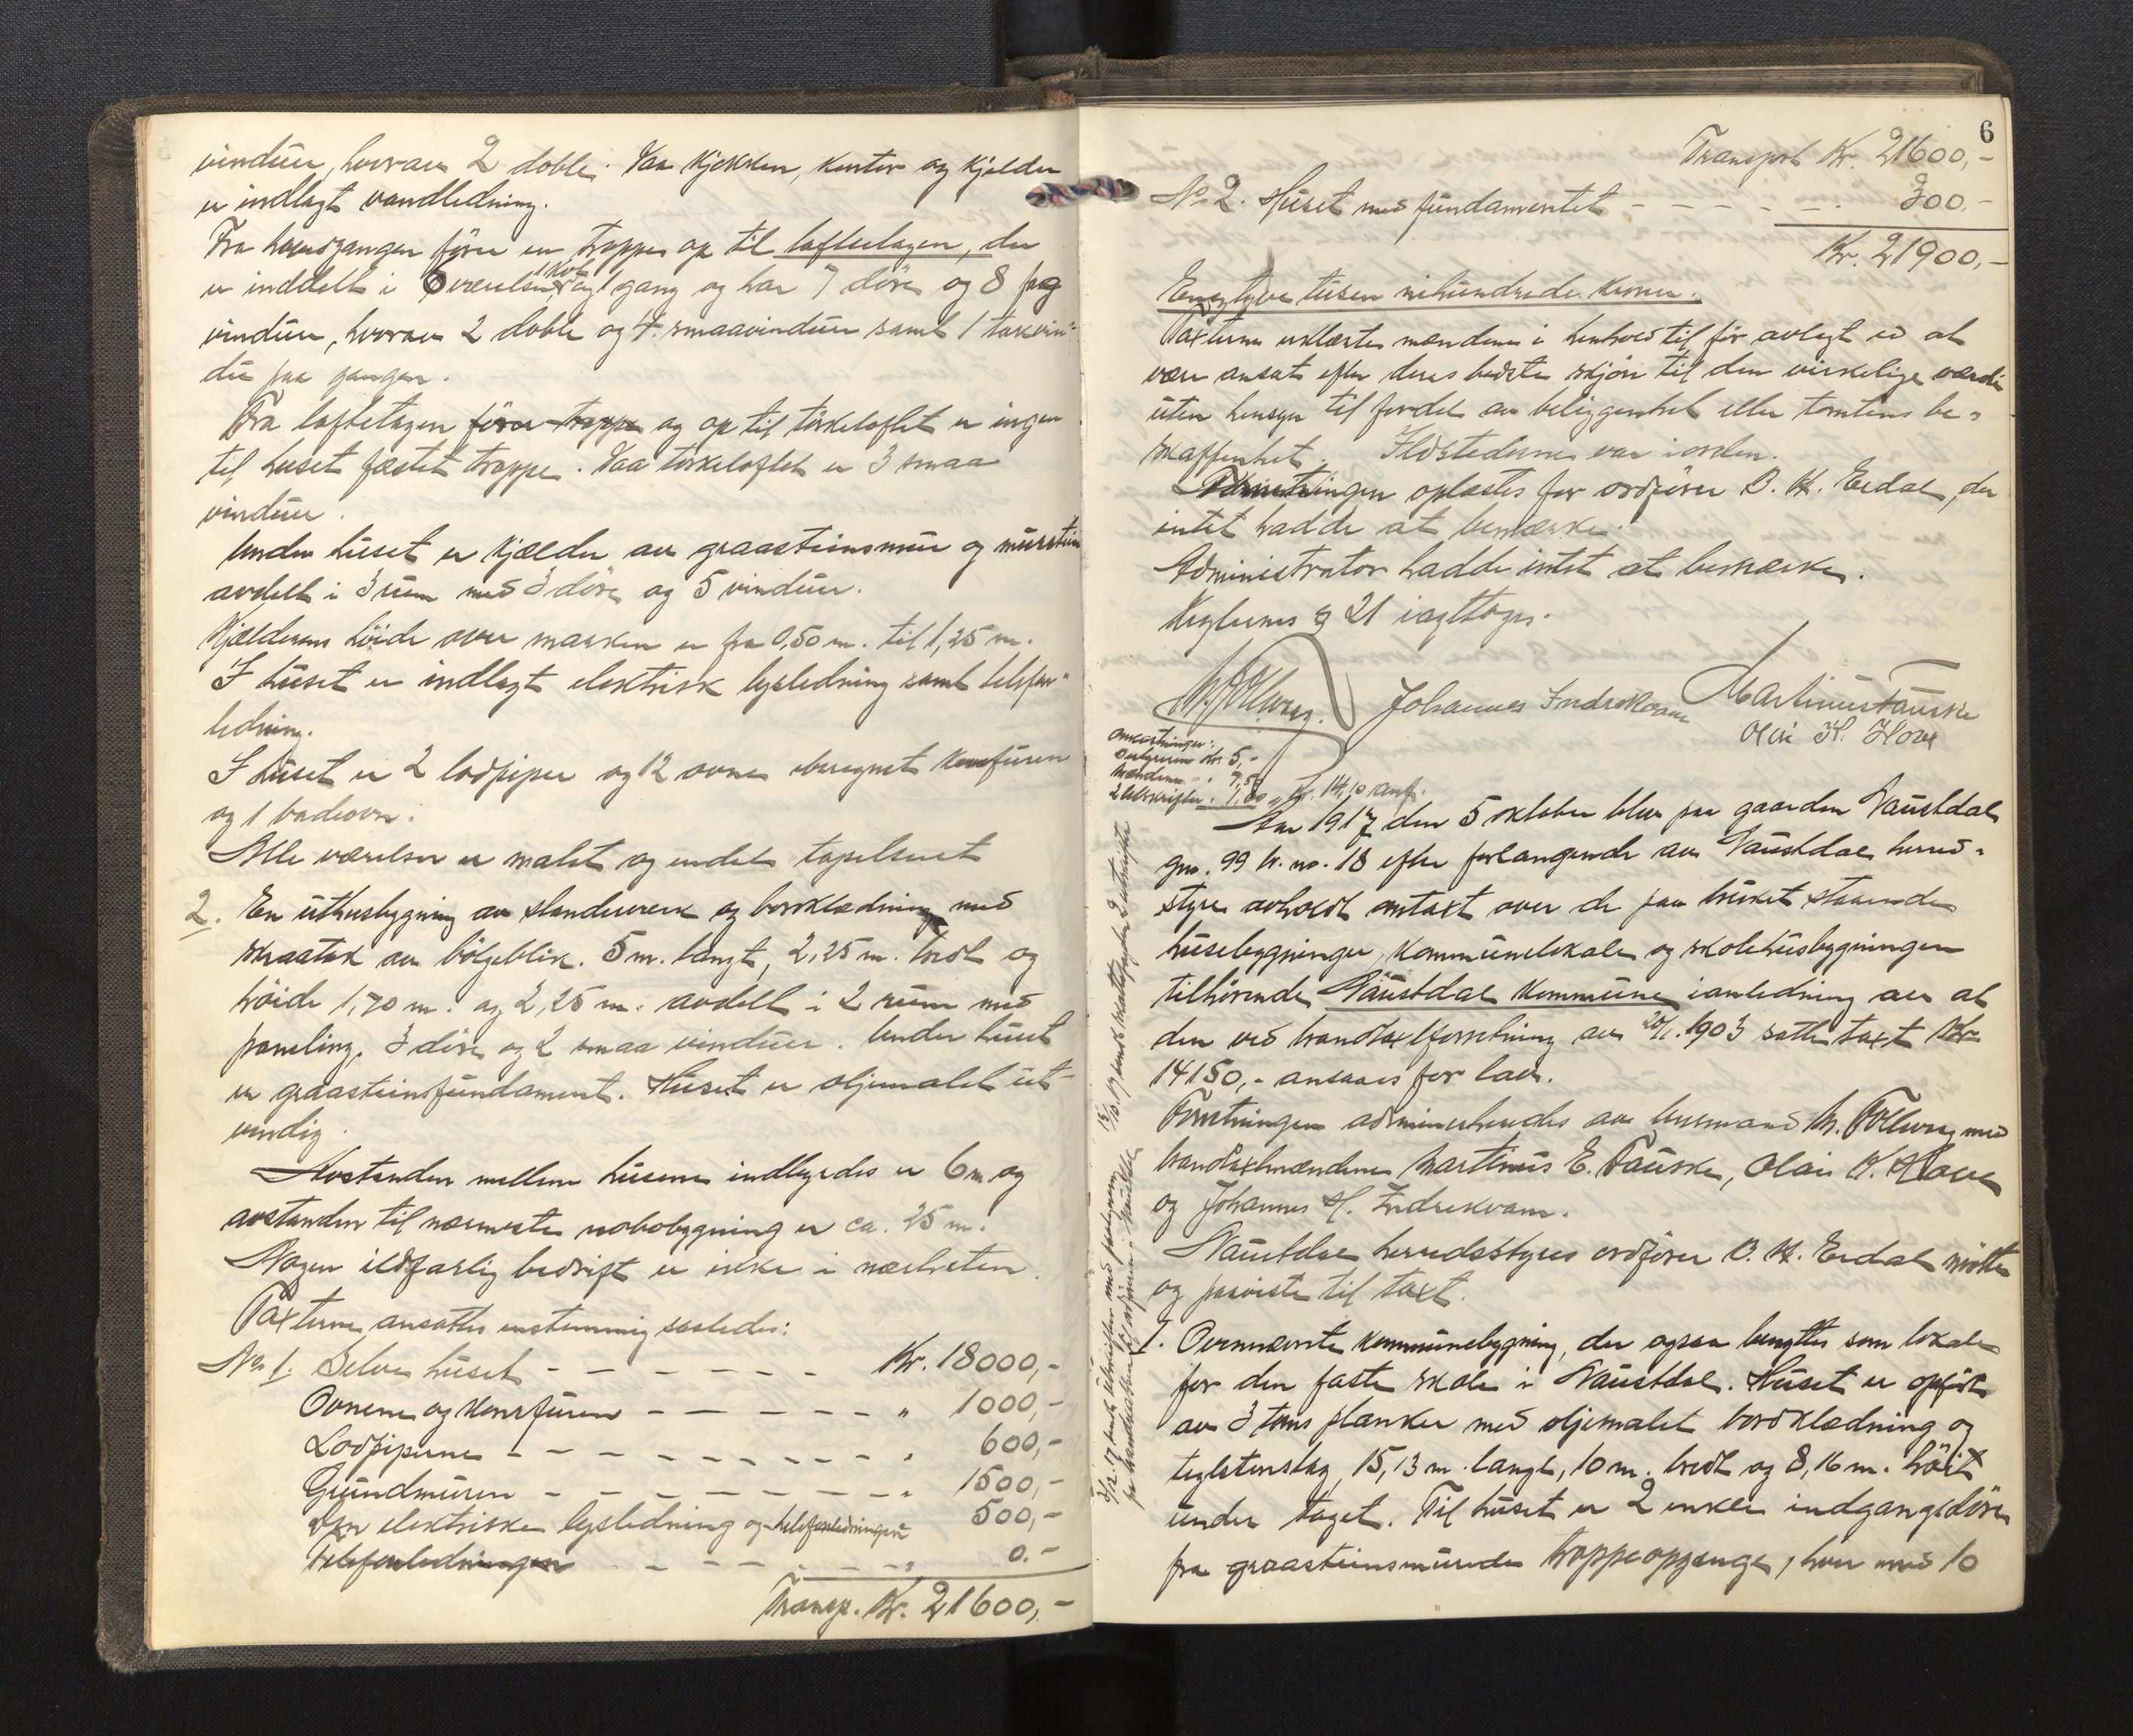 vinduer, hvorav 2 doble. Paa kjøkken, kontor og kjelder
er indlagt vandledning.
Fra hovedgangen fører en trappe op til loftsetagen, der
er inddelt i 6 værelser og 1 gang og har 7 døre og 8 fag
vinduer, hvorav 2 doble og 4 smaavinduer samt 1 takvin-
du paa gangen.
Fra loftetagen fører trappe og op til tørkeloftet er ingen
til huset fæstet trappe. Paa tørkeloftet er 3 smaa
vinduer.
Under huset er kjælder av graastensmur og murstein
avdelt i 3 rum med 3 døre og 5 vinduer.
Kjælderens høide over marken er fra 0,50 m. til 1,25 m.
I huset er indlagt elektrisk lysledning samt telefon-
ledning.
I huset er 2 lodpiper og 12 ovne iberegnet komfuren
og 1 badeovn.
Alle værelser er malet og endel tapetseret
2. En uthusbygning av standverk og bordklædning med
skraatak av bølgeblik. 5 m. langt, 2,25 m. bredt og
høide 1,70 m. og 2,25 m. avdelt i 2 rum med
paneling, 3 døre og 2 smaa vinduer. Under huset
er graasteinsfundament. Huset er oljemalet ut-
vendig.
Avstanden mellem husene indbyrdes er 6 m og
avstanden til nærmeste nabobygning er ca. 25 m.
Nogen ildfarlig bedrift er ikke i nærheten.
Taxterne ansattes enstemmig saaledes:
No 1. Selve huset - - - - - - Kr. 18000,-
Ovnene og komfuren - - - - - - " 1000,-
Lodpiperne - - - - - - - - " 600,-
Grundmuren - - - - - - - - " 1500,-
Den elektriske lysledning og telefonledningen 500,-
Telefonledningen - - - - - " 0.-
Transp. Kr. 21600,-
6
Transport Kr. 21600,-
No 2. Huset med fundamentet - - - - - - 300,-
Kr. 21900,-
En og tyve tusen nihundrede kroner.
Taxterne erklærte mændene i henhold til før avlagt ed at
være ansat efter deres bedste skjøn til den virkelige værdi
uten hensyn til fordel av beliggenhet eller tomtens be-
skaffenhet. Ildstederne var i orden.
Forretningen oplæstes for ordfører B. H. Erdal, der
intet hadde at bemærke.
Administrator hadde intet at bemærke.
Reglernes § 21 iagttoges.
Johannes Indrekvam Martinus Fauske
Olai K. Hove
Omkostninger:
Bestyreren Kr. 5,-
Mændene " 7,50
2 utskrifter " 1,60 = Kr. 14,10 anf.
Aar 1917 den 5 oktober blev paa gaarden Naustdal
gno. 99 br. no. 18 efter forlangende av Naustdal herred-
styre avholdt omtaxt over de paa bruket staaende
husebygninger, kommunelokale og skolehusbygningen
tilhørende Naustdal kommune i anledning av at
den ved brandtaxtforretning av 20/1. 1903 satte taxt Kr.
14150,- ansaaes for lav.
Forretningen administreredes av lensmand M. Tollevag med
brandtaxtmændene Martinus E. Fauske, Olai K. Hove
og Johannes H. Indrekvam.
Naustdal herredsstyres ordfører B. H. Erdal møtte
og paaviste til taxt.
1. Overnævnte kommunebygning, der ogsaa benyttes som lokale
for den faste skole i Naustdal. Huset er opført
av 3 toms planker med oljemalet bordklædning og
teglstenstag, 15,13 m. langt, 10 m. bredt og 8,16 m. høit
under taget. Til huset er 2 enkle indgangsdøre
fra graasteinsmurede trappeopgange, hver med 10